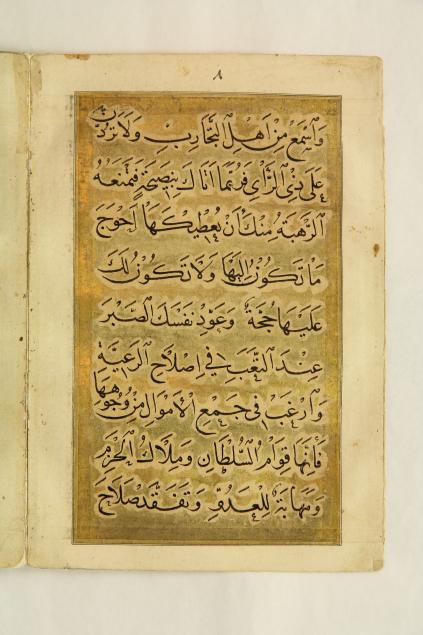 ٨
وَاسْمَعْ مِنْ اَهْلِ التَّجَارِبِ وَلَا تَرُدَّنَّ
عَلَى ذِي الرَّأْيِ فَرُبَّمَا اَتَاكَ بِنَصِيحَةٍ فَتَمْنَعُهُ
الرَّهْبَةُ مِنْكَ اَنْ يُعْطِيكَهَا اَحْوَجَ
مَا تَكُونُ اِلَيْهَا وَلَا تَكُونُ لَكَ
عَلَيْهَا حُجَّةٌ وَعَوِّدْ نَفْسَكَ الصَّبْرَ
عِنْدَ التَّعَبِ فِي اِصْلَاحِ الرَّعِيَّةِ
وَارْغَبْ فِي جَمْعِ الْاَمْوَالِ مِنْ وُجُوهِهَا
فَاِنَّهَا قِوَامُ السُّلْطَانِ وَمِلَاكُ الْحَزْمِ
وَمَهَابَةٌ لِلْعَدُوِّ وَتَفَقَّدْ صَلَاحَ